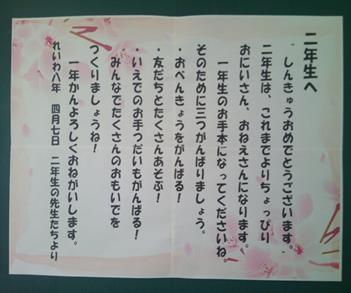 二年生へ
しんきゅうおめでとうございます。
二年生は、これまでよりちょっぴり
おにいさん、おねえさんになります。
一年生のお手本になってくださいね。
そのために三つがんばりましょう。
・おべんきょうをがんばる！
・友だちとたくさんあそぶ！
・いえでのお手つだいもがんばる！
みんなでたくさんのおもいでを
つくりましょうね！
一年かんよろしくおねがいします。
れいわ八年　四月七日　二年生の先生たちより